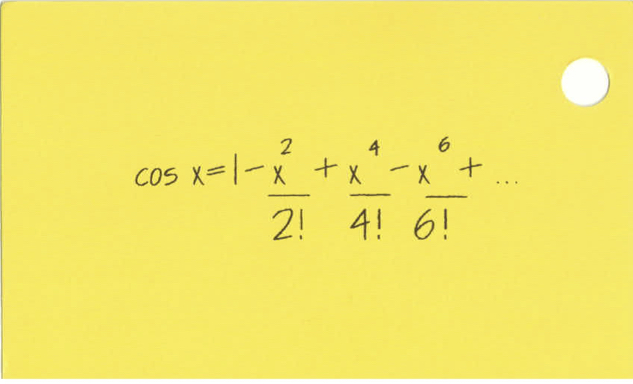 cos x = 1 - x²/2! + x⁴/4! - x⁶/6! + ...